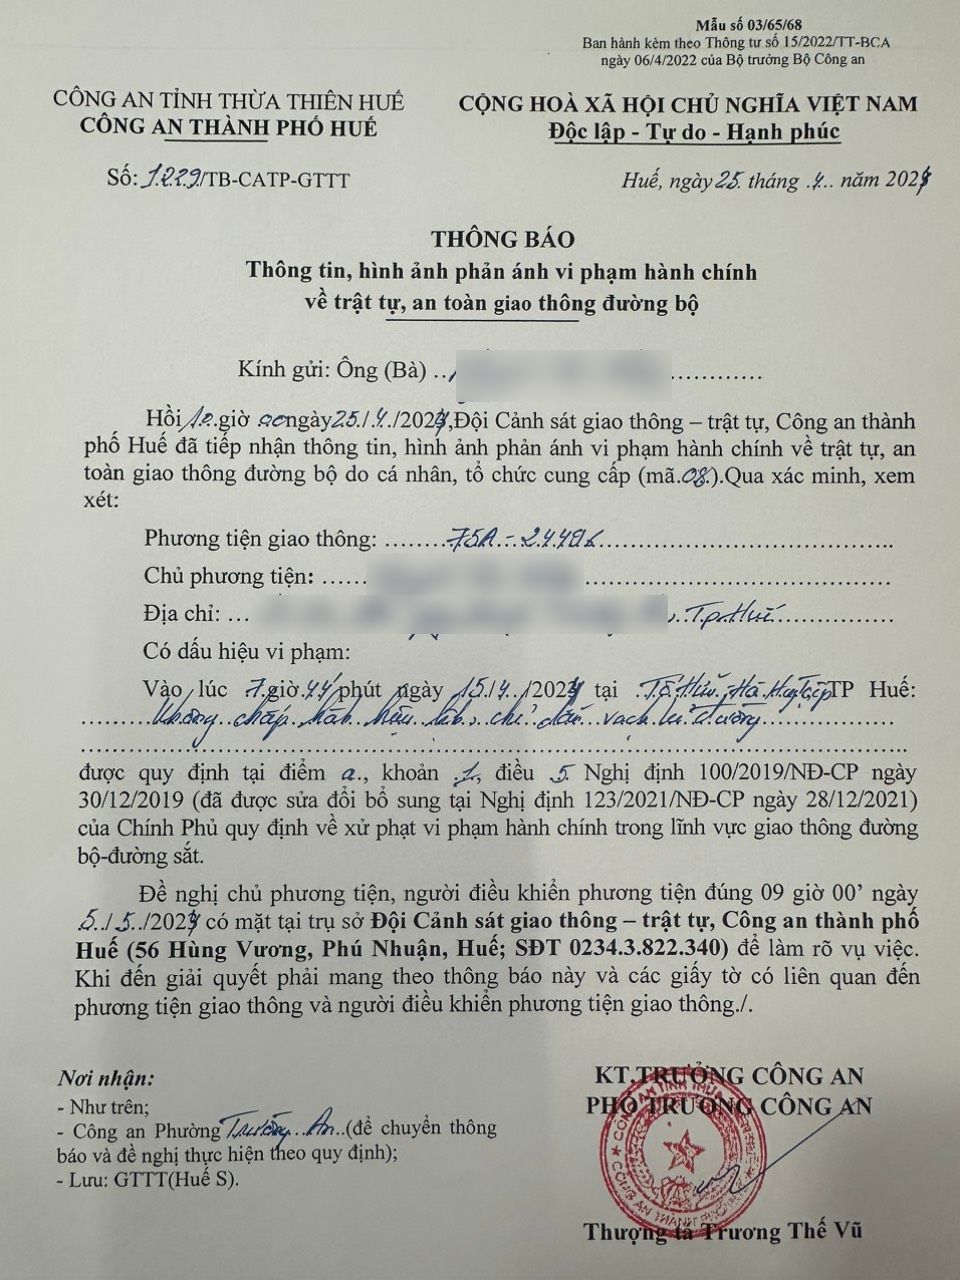 Mẫu số 03/65/68
Ban hành kèm theo Thông tư số 15/2022/TT-BCA
ngày 06/4/2022 của Bộ trưởng Bộ Công an
CÔNG AN TỈNH THỪA THIÊN HUẾ
CÔNG AN THÀNH PHỐ HUẾ
CỘNG HOÀ XÃ HỘI CHỦ NGHĨA VIỆT NAM
Độc lập - Tự do - Hạnh phúc
Số: 1229/TB-CATP-GTTT
Huế, ngày 25 tháng 4 năm 2024
THÔNG BÁO
Thông tin, hình ảnh phản ánh vi phạm hành chính
về trật tự, an toàn giao thông đường bộ
Kính gửi: Ông (Bà)
Hồi giờ 00 ngày 25/4/2024, Đội Cảnh sát giao thông – trật tự, Công an thành
phố Huế đã tiếp nhận thông tin, hình ảnh phản ánh vi phạm hành chính về trật tự, an
toàn giao thông đường bộ do cá nhân, tổ chức cung cấp (mã.08.).Qua xác minh, xem
xét:
Phương tiện giao thông: 75A -
Chủ phương tiện:
Địa chỉ: Tp. Huế
Có dấu hiệu vi phạm:
Vào lúc 7 giờ 44 phút ngày 15/4/2024 tại Tố Hữu, Hà Huy Tập TP Huế:
Không chấp hành hiệu lệnh, chỉ dẫn vạch kẻ đường
được quy định tại điểm a, khoản 1, điều 5 Nghị định 100/2019/NĐ-CP ngày
30/12/2019 (đã được sửa đổi bổ sung tại Nghị định 123/2021/NĐ-CP ngày 28/12/2021)
của Chính Phủ quy định về xử phạt vi phạm hành chính trong lĩnh vực giao thông đường
bộ-đường sắt.
Đề nghị chủ phương tiện, người điều khiển phương tiện đúng 09 giờ 00’ ngày
5/5/2024 có mặt tại trụ sở Đội Cảnh sát giao thông – trật tự, Công an thành phố
Huế (56 Hùng Vương, Phú Nhuận, Huế; SĐT 0234.3.822.340) để làm rõ vụ việc.
Khi đến giải quyết phải mang theo thông báo này và các giấy tờ có liên quan đến
phương tiện giao thông và người điều khiển phương tiện giao thông./.
Nơi nhận:
- Như trên;
- Công an Phường Trường An (để chuyển thông
báo và đề nghị thực hiện theo quy định);
- Lưu: GTTT(Huế S).
KT.TRƯỞNG CÔNG AN
PHÓ TRƯỞNG CÔNG AN
Thượng tá Trương Thế Vũ